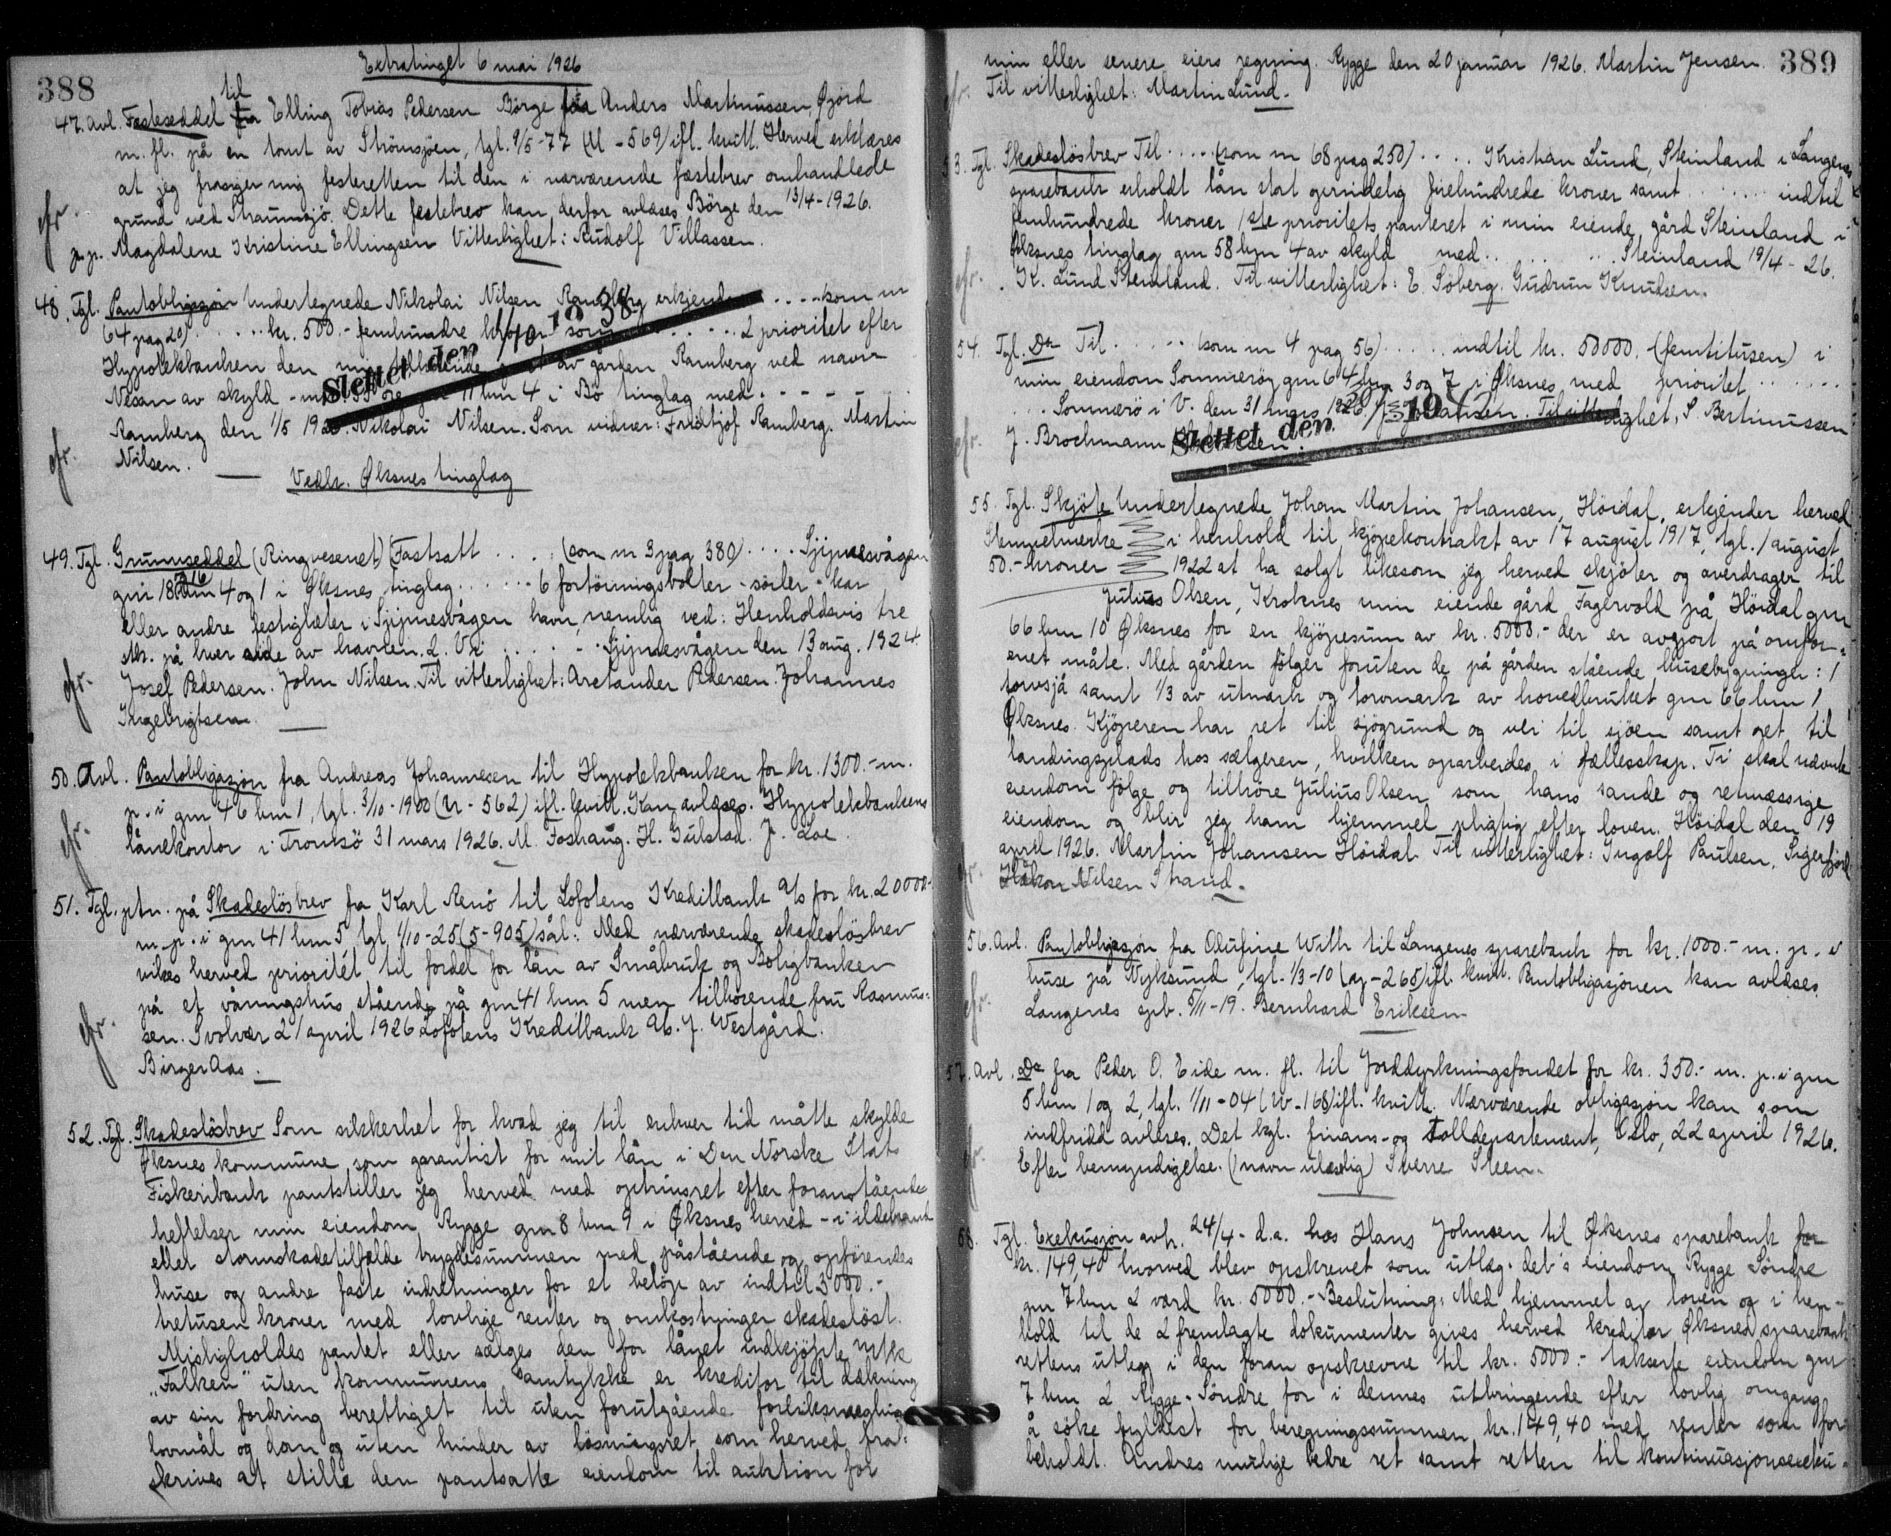 388
Extratinget 6 mai 1926
til
47. Avl. Festeseddel fra Elling Tobias Pedersen Børge fra Anders Martinussen, Gjørd
m. fl. på en tomt av Strömsjöen, tgl. 9/5-77 (M - 569) ifl. kvitt. Herved erklæres
at jeg frasiger mig festeretten til den i nærværende festebrev omhandlede
grund ved Straumsjö. Dette festebrev kan derfor avlæses. Börge den 13/4-1926.
p.p. Magdalene Kristine Ellingsen Vitterlighet: Rudolf Villassen.
cfr.
48. Tgl. Pantobligasjon Undertegnede Nikolai Nilsen Ramberg erkjender .... som nr
64 pag 20) ..... kr. 500.- femhundre kroner som ...... 2 prioritet efter
Hypotekbanken den mig tilhørende part av gården Ramberg ved navn
Nesan av skyld - mrk 11 bnr 4 i Bø tinglag med ......
Slettet den 1/10 1938
Ramberg den 1/5 1926. Nikolai Nilsen. Som vidner: Fridtjof Ramberg. Martin
Nilsen.
cfr.
Vedk. Øksnes tinglag
49. Tgl. Grunnseddel (Ringvesenet) Fastsatt .... (som nr 3 pag 380) .... Tjijnesvågen
gnr 18 bnr 4 og 1 i Øksnes tinglag ...... 6 fortöiningsbolter - söiler - kar
eller andre festigheter i Tjijnesvågen havn, nemlig ved: Henholdsvis tre
stk. på hver side av havnen. 2. Vi ...... Tjijnesvågen den 13 aug. 1924
Josef Pedersen. John Nilsen. Til vitterlighet: Arctander Pedersen. Johannes
Ingebrigtsen.
cfr.
50. Avl. Pantobligasjon fra Andreas Johannesen til Hypotekbanken for kr. 1300.- m.
p. i gnr 46 bnr 1, tgl. 3/10-1900 (U - 562) ifl. kvitt. Kan avlæses. Hypotekbankens
lånekontor i Tromsö 31 mars 1926. M. Foshaug. H. Gulstad. J. Loe.
cfr.
51. Tgl. ptn. på Skadeslösbrev fra Karl Renö til Lofotens Kreditbank A/S for kr. 20000.-
m. p. i gnr 41 bnr 5 tgl. 1/10-25 (5-905) sål: Med nærværende skadeslösbrev
vikes herved prioritet til fordel for lån av Småbruk og Boligbanken
på et våningshus stående på gnr 41 bnr 5 men tilhörende fru Rasmus-
sen. Svolvær 21 april 1926 Lofotens Kreditbank A/S. J. Westgård.
Birger Aas.
cfr.
52. Tgl. Skadeslösbrev Som sikkerhet for hvad jeg til enhver tid måtte skylde
Øksnes kommune som garantist for mit lån i Den Norske Stats
Fiskeribank pantstiller jeg herved med optrinsret efter foranstående
heftelser min eiendom Rygge gnr 8 bnr 9 i Øksnes herred - i ildebrand
eller stormskadetilfælde trygdesummen med påstående og opförendes
huse og andre faste indretninger for et belöp av indtil 3000.-
tretusen kroner med lovlige renter og omkostninger skadeslöst.
Misligholdes pantet eller sælges den for lånet indkjöpte mtk
"Falken" uten kommunens samtykke er kreditor til dækning
av sin fordring berettiget til uten forutgående forliksmægling
lovmål og dom og uten hinder av løsningsret som herved fra-
skrives at stille den pantsatte eiendom til auktion for
389
min eller senere eiers regning. Rygge den 20 januar 1926. Martin Jensen.
Til vitterlighet: Martin Lund.
cfr.
53. Tgl. Skadeslösbrev Til ..... (som nr 68 pag 250) .... Kristian Lund, Steinland i Langenes
sparebank erholdt lån stort oprindelig firehundrede kroner samt ...... indtil
femhundrede kroner 1ste prioritets panteret i min eiende gård Steinland i
Øksnes tinglag gnr 58 bnr 4 av skyld med ...... Steinland 19/4-26.
K. Lund Steinland. Til vitterlighet: E. Söberg. Gudrun Knudsen.
cfr.
54. Tgl. Do Til ...... (som nr 4 pag 56) ..... indtil kr. 50000. (femtitusen) i
min eiendom Sommeröy gnr 64 bnr 3 og 7 i Øksnes med prioritet .......
... Sommerö i V. den 31 mars 1926. Johansen. Til vitterlighet: S. Bertinussen
J. Brochmann
Slettet den 19
cfr.
55. Tgl. Skjöte Undertegnede Johan Martin Johansen, Höidal, erkjender herved
Stempelmerke i henhold til kjöpekontrakt av 17 august 1917, tgl. 1 august
50.- kroner 1922 at ha solgt likesom jeg herved skjöter og overdrager til
Julius Olsen, Kroknes min eiende gård Fagervold på Höidal gnr
66 bnr 10 Øksnes for en kjöpesum av kr. 5000.- der er avgjort på omfor-
enet måte. Med gården fölger foruten de på gården stående husebygninger: 1
torvsjå samt 1/3 av utmark og torvmark av hovedbruket gnr 66 bnr 1
Øksnes. Kjöperen har ret til sjögrund og vei til sjöen samt ret til
landingsplads hos sælgeren, hvilken oparbeides i fællesskap. Ti skal nævnte
eiendom fölge og tilhöre Julius Olsen som hans sande og retmæssige
eiendom og blir jeg ham hjemmel pligtig efter loven. Höidal den 19
april 1926. Martin Johansen Höidal. Til vitterlighet: Ingolf Paulsen, Sigerfjord
Håkon Nilsen Strand.
cfr.
56. Avl. Pantobligasjon fra Olufine With til Langenes sparebank for kr. 1000.- m. p. i
huse på Nyksund, tgl. 1/3-10 (ay-265) ifl. kvitt. Pantobligasjonen kan avlæses.
Langenes spb. 5/11-19. Bernhard Eriksen
cfr.
57. Avl. Do fra Peder O. Eide m. fl. til Jorddyrkningsfondet for kr. 350.- m. p. i gnr
5 bnr 1 og 2, tgl. 1/11-04 (W-168) ifl. kvitt. Nærværende obligasjon kan som
indfridd avleses. Det kgl. finans- og tolldepartement, Oslo, 22 april 1926.
Efter bemyndigelse. (navn ulæselig) Sverre Steen.
cfr.
58. Tgl. Exekusjon avh. 24/4 - d.a. hos Hans Johnsen til Øksnes sparebank for
kr. 149,40 hvorved blev opskrevet som utlæg deb's eiendom Rygge Söndre
gnr 7 bnr 2 værd kr. 5000.- Beslutning: Med hjemmel av loven og i hen-
hold til de 2 fremlagte dokumenter gives herved kreditor Øksnes sparebank
rettens utlegg i den foran opskrevne til kr. 5000.- takserte eiendom gnr
7 bnr 2 Rygge - Söndre for i dennes utbringende efter lovlig omgang
å söke fyldest for beregningssummen kr. 149,40 med renter som for-
beholdt. Andres mulige bedre ret samt retten til kontinuasjonsexeku-